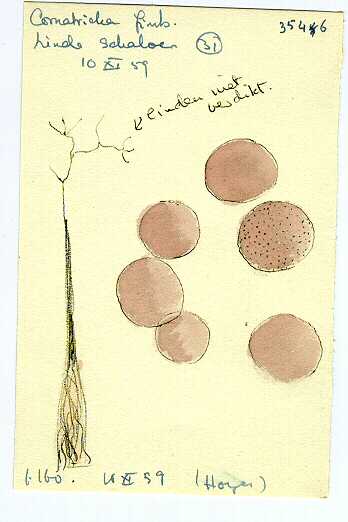 Comatricha fimb. 35446
Linde Schaloen 31
10 XI 59
einden niet
verdikt.
1:160. 10 XI 59 (Hoyer)